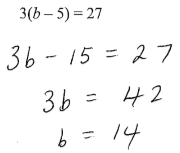 3(b – 5) = 27
3b - 15 = 27
3b = 42
b = 14